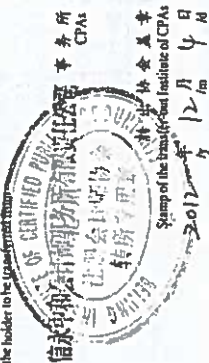 the holder to be transferred from
信永中和会计师事务所有限责任公司 事务所
CPAs
OF CERTIFIED PUB
注册会计师协会
转所专用章
BEIJING
转出协会盖章
Stamp of the transfer-out Institute of CPAs
2012年 12月 4日
/y /m /d